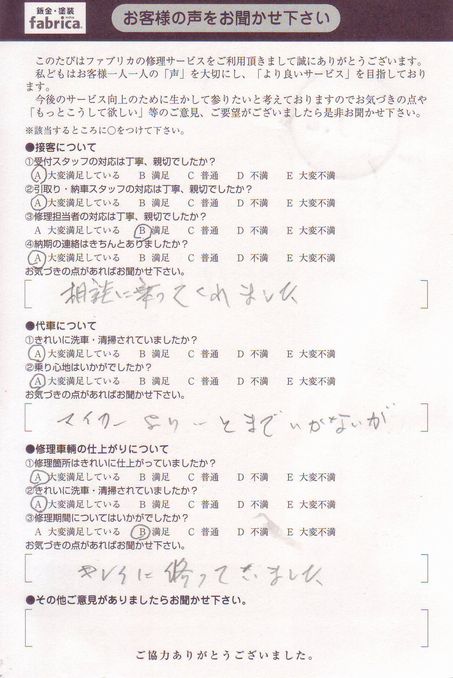 鈑金・塗装
fabrica.
お客様の声をお聞かせ下さい
このたびはファブリカの修理サービスをご利用頂きまして誠にありがとうございます。
私どもはお客様一人一人の「声」を大切にし、「より良いサービス」を目指しております。
今後のサービス向上のために生かして参りたいと考えておりますのでお気づきの点や
「もっとこうして欲しい」等のご意見、ご要望がございましたら是非お聞かせ下さい。
※該当するところに○をつけて下さい。
●接客について
①受付スタッフの対応は丁寧、親切でしたか？
A 大変満足している B 満足 C 普通 D 不満 E 大変不満
②引取り・納車スタッフの対応は丁寧、親切でしたか？
A 大変満足している B 満足 C 普通 D 不満 E 大変不満
③修理担当者の対応は丁寧、親切でしたか？
A 大変満足している B 満足 C 普通 D 不満 E 大変不満
④納期の連絡はきちんとありましたか？
A 大変満足している B 満足 C 普通 D 不満 E 大変不満
お気づきの点があればお聞かせ下さい。
相談に乗ってくれました
●代車について
①きれいに洗車・清掃されていましたか？
A 大変満足している B 満足 C 普通 D 不満 E 大変不満
②乗り心地はいかがでしたか？
A 大変満足している B 満足 C 普通 D 不満 E 大変不満
お気づきの点があればお聞かせ下さい。
マイカーより－とまでいかないが
●修理車輌の仕上がりについて
①修理箇所はきれいに仕上がっていましたか？
A 大変満足している B 満足 C 普通 D 不満 E 大変不満
②きれいに洗車・清掃されていましたか？
A 大変満足している B 満足 C 普通 D 不満 E 大変不満
③修理期間についてはいかがでしたか？
A 大変満足している B 満足 C 普通 D 不満 E 大変不満
お気づきの点があればお聞かせ下さい。
キレイに修ってきました
●その他ご意見がありましたらお聞かせ下さい。
ご協力ありがとうございました。